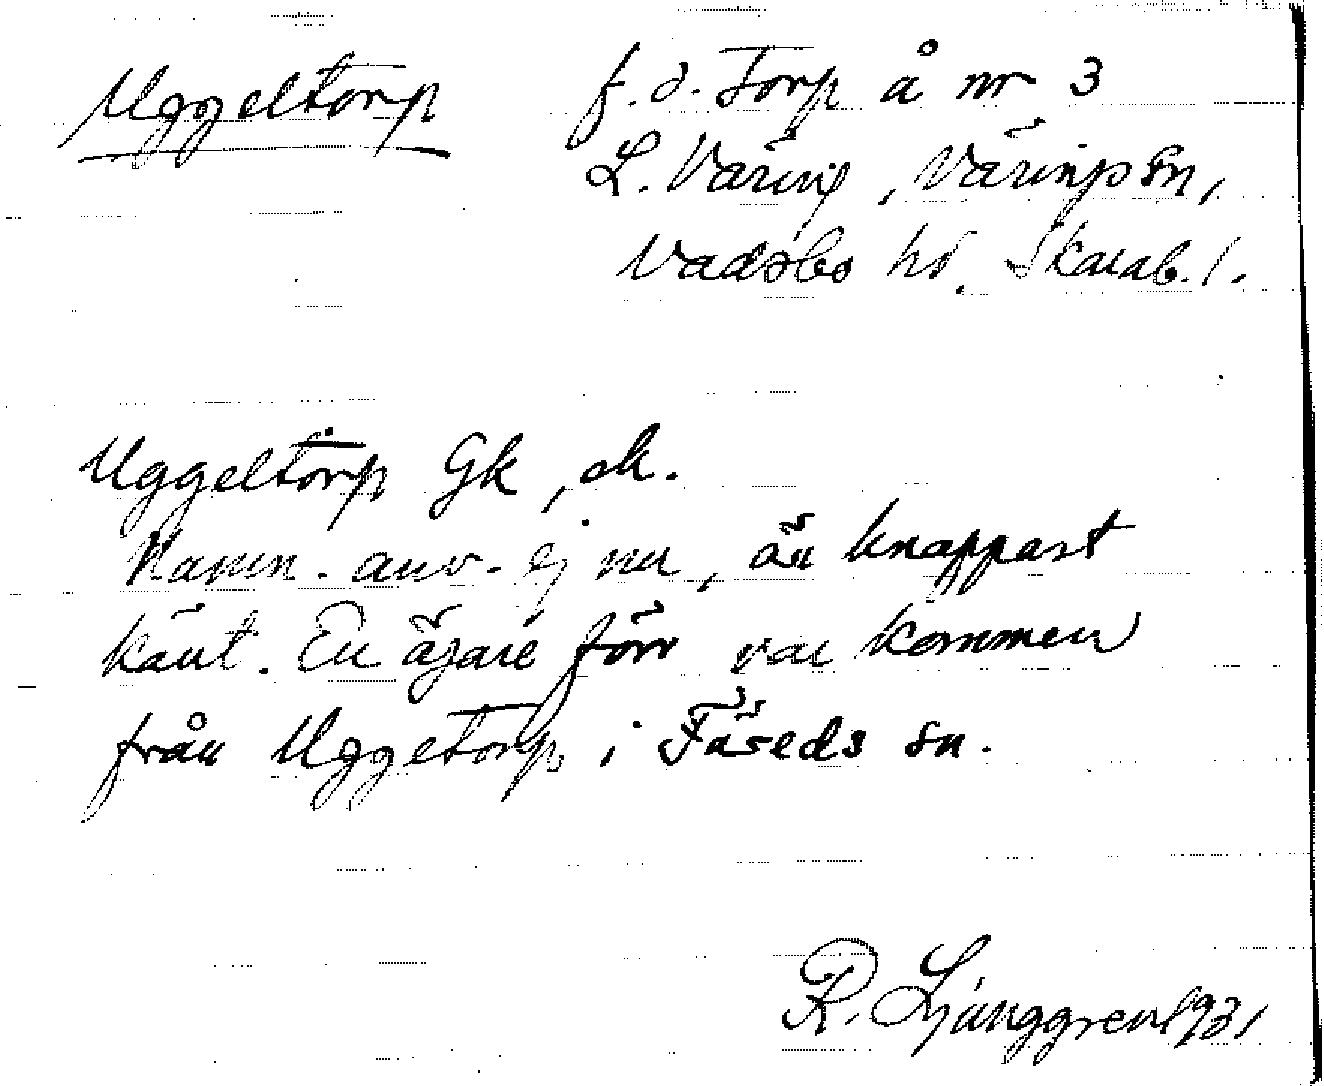 Uggeltorp f.d. Torp å nr 3
L. Väring, Värings sn,
Vadsbo hd. Skarab. l.
Uggeltorp Gk, ck.
Namn. anv. ej nu, är knappast
känt. En ägare förr var kommen
från Uggetorp i Färeds sn.
R. Ljunggren 1931